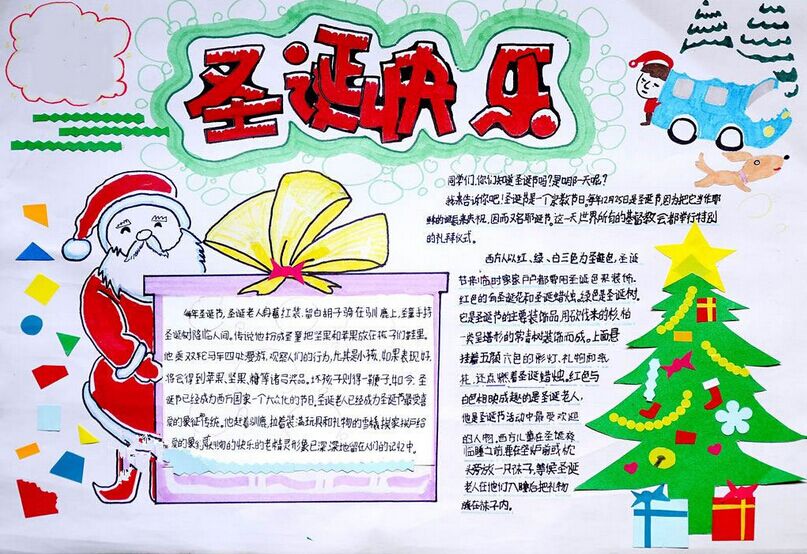 圣诞快乐
同学们,你们知道圣诞节吗?是哪一天呢?
我来告诉你吧!圣诞节是一个宗教节日,每年12月25日是圣诞节因为把它当作耶
稣的诞辰来庆祝,因而又名耶诞节,这一天世界所有的基督教会都举行特别
的礼拜仪式。
西方人以红、绿、白三色为圣诞色,圣诞
节来临时家家户户都要用圣诞色来装饰,
红色的有圣诞花和圣诞蜡烛。绿色是圣诞树。
它是圣诞节的主要装饰品,用砍伐来的杉、柏
一类呈塔形的常青树装饰而成。上面悬
挂着五颜六色的彩灯、礼物和纸
花,还点燃着圣诞蜡烛。红色与
白色相映成趣的是圣诞老人,
他是圣诞节活动中最受欢迎
的人物。西方儿童在圣诞夜
临睡之前,要在壁炉前或枕
头旁放一只袜子,等候圣诞
老人在他们入睡后把礼物
放在袜子内。
每年圣诞节,圣诞老人身着红装,留白胡子骑在驯鹿上,圣童手持
圣诞树降临人间。传说他扮成圣童把坚果和苹果放在孩子们鞋里。
他乘双轮马车四处漫游,观察人们的行为,尤其是小孩,如果表现好,
将会得到苹果、坚果、糖等诸多奖品。坏孩子则得一鞭子。如今,圣
诞节已经成为西方国家一个大众化的节日,圣诞老人已经成为圣诞节最受喜
爱的象征传统。他赶着驯鹿,拉着装满玩具和礼物的雪橇,挨家挨户给
物的快乐的老精灵形象已深深地留在人们的记忆中。